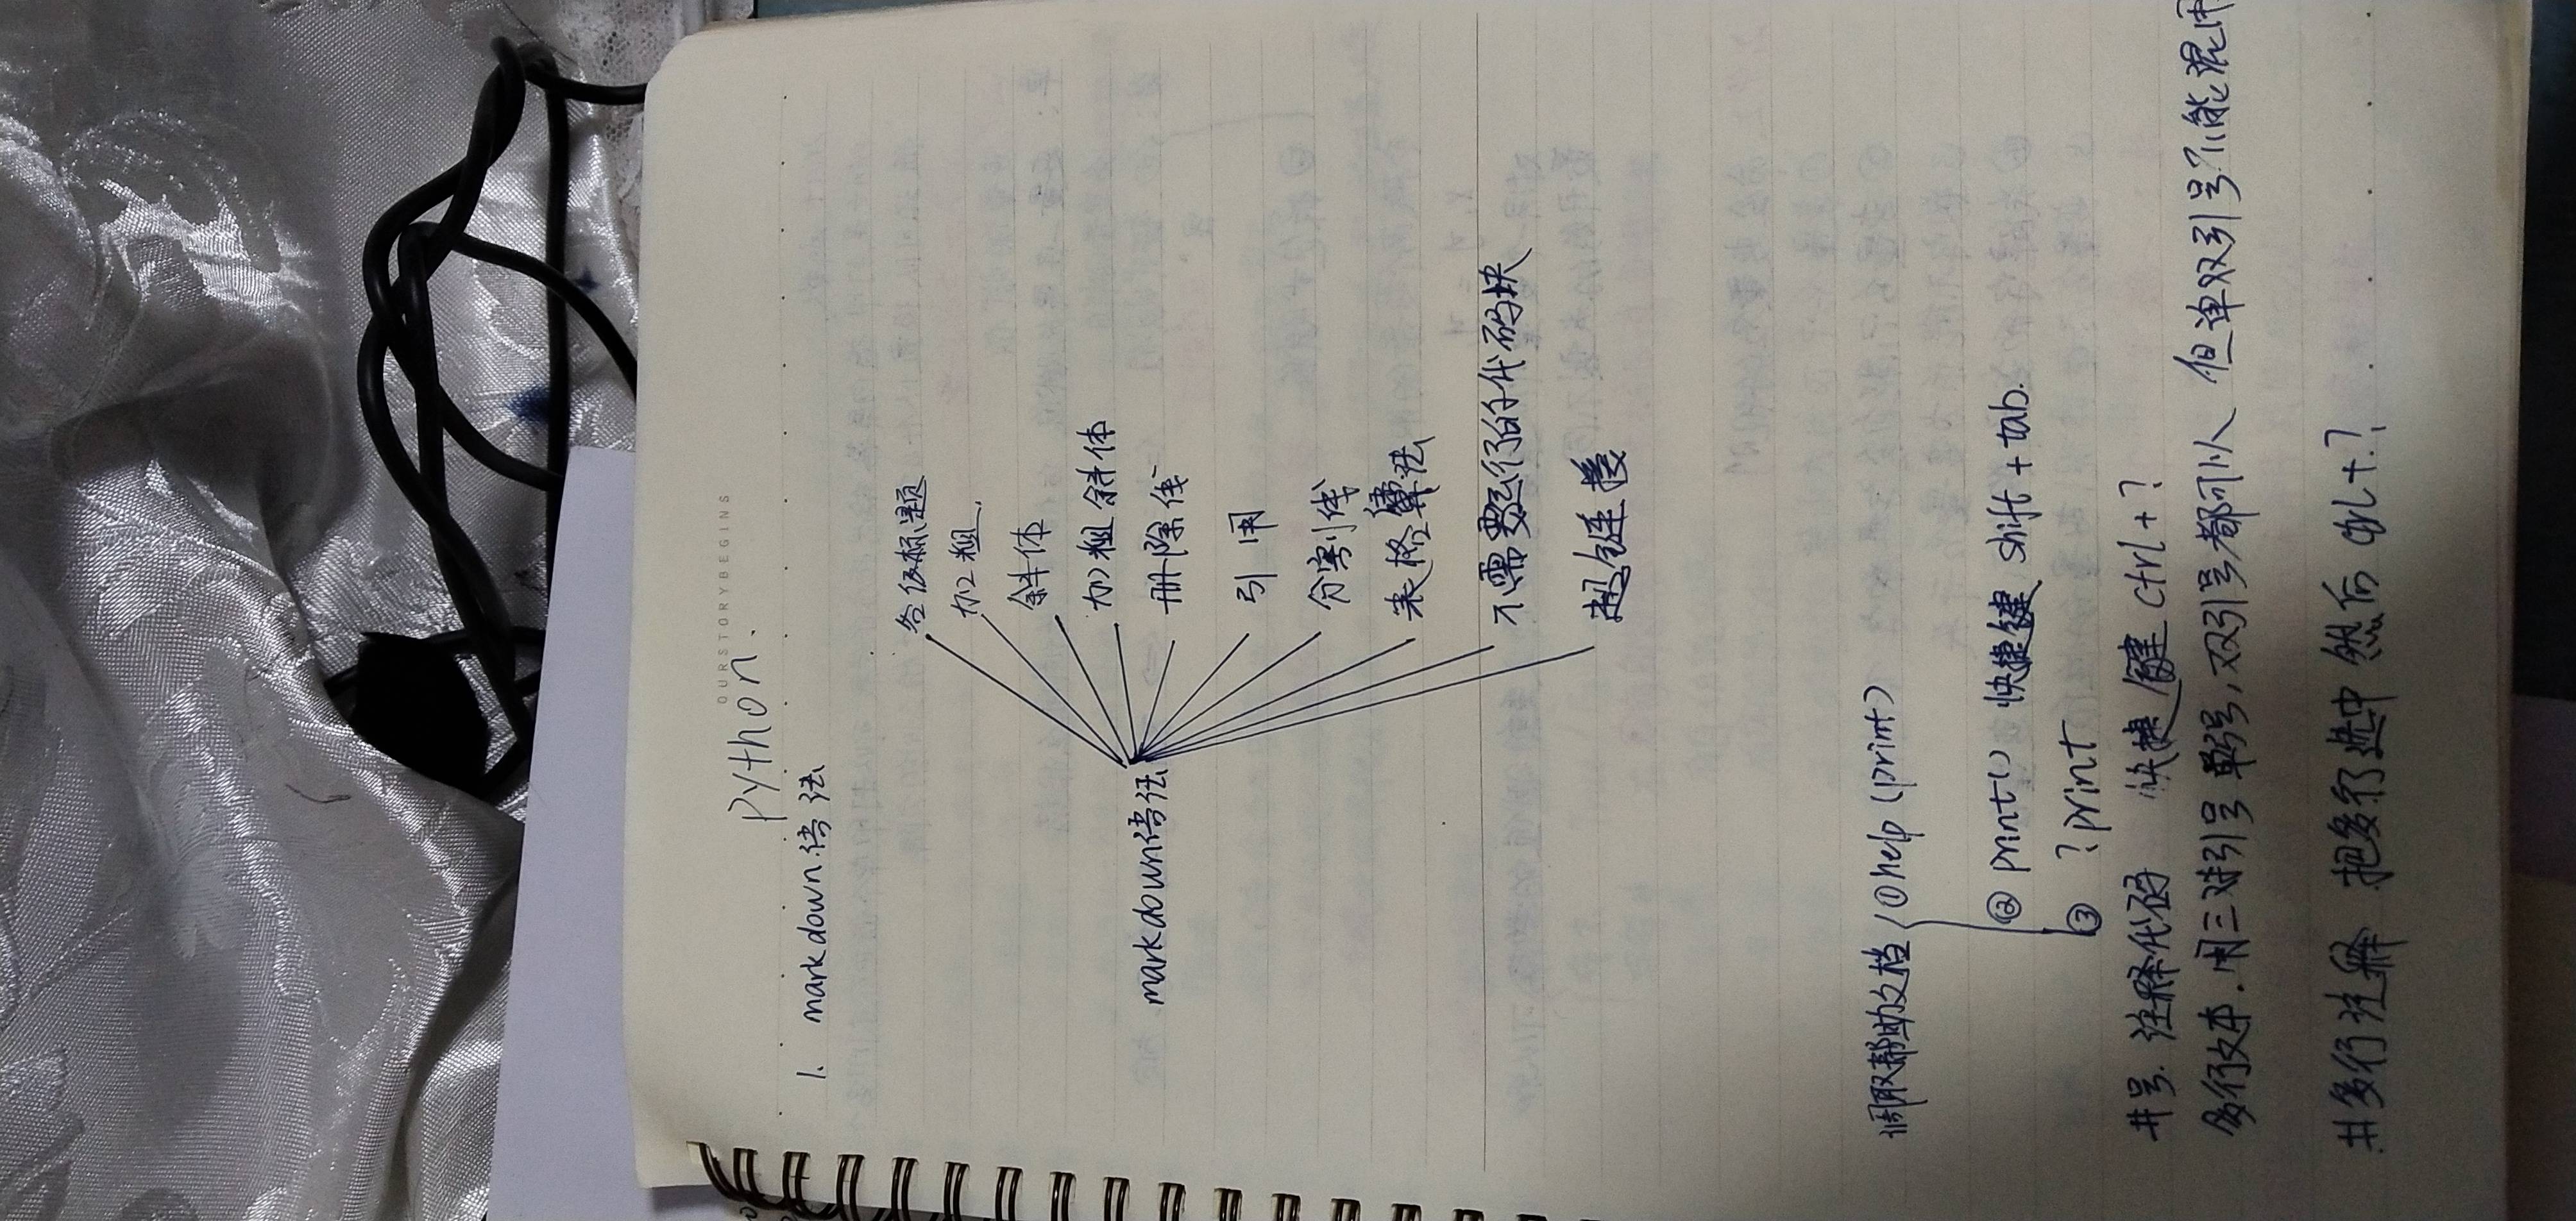 OURSTORYBEGINS
Python.
1. markdown语法
各级标题
加粗.
斜体
加粗斜体
删除线
引用
分割线
表格算法
不需要运行的代码块
超链接
markdown语法
调取帮助文档 ①help (print)
② print() 快捷键 shift + tab.
③ ?print
井号. 注释代码 快捷键 ctrl + ?
多行文本. 用三对引号 单号, 双引号都可以 但单双引号不能混用
井多行注释 把多行选中 然后 ctrl + ?